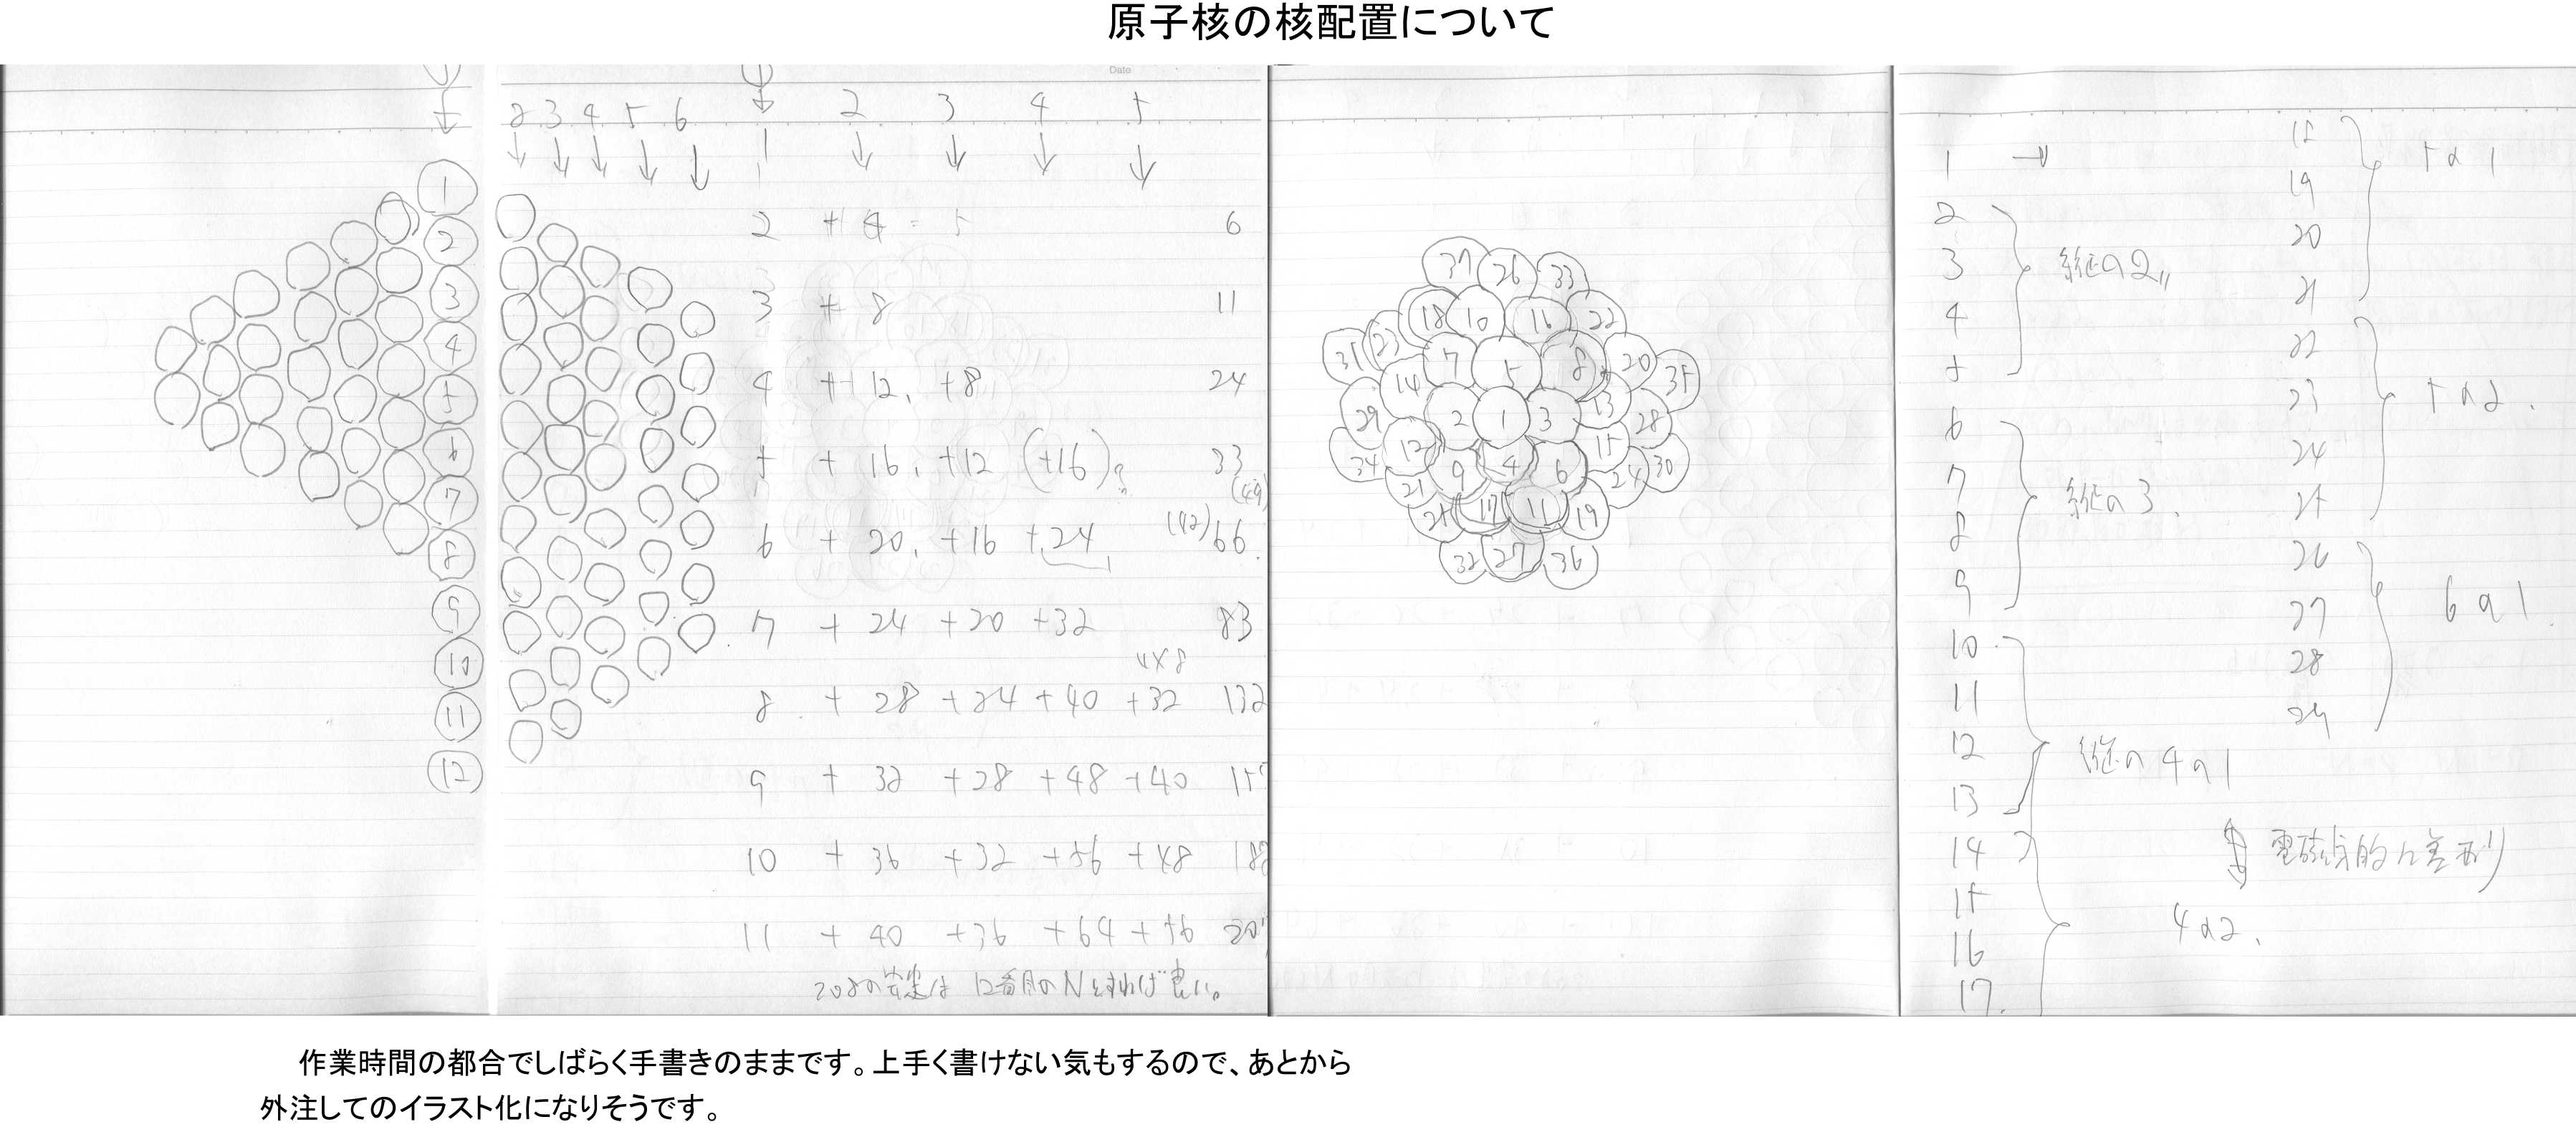 原子核の核配置について
Date
1
2
3
4
5
6
7
8
9
10
11
12
2 3 4 5 6
2 3 4 5
1
2 + 4 = 5 6
3 + 8 11
4 + 12, +8 24
5 + 16, +12 (+16)? 33
(49)
6 + 20, +16 +24 (42) 66
7 + 24 +20 +32 83
4×8
8 + 28 +24 +40 +32 132
9 + 32 +28 +48 +40
10 + 36 +32 +56 +48
11 + 40 +36 +64 +56
12番目のNとすれば良い。
37 26 33
18 10 16 22
31 23 7 5 8 20 35
14 13
29 2 1 3 28
12 15
34 9 4 6 24 30
21
25 17 11 19
32 27 36
1 →
2
3
4
5
縦の2
6
7
8
9
縦の3
10
11
12
13
縦の4の1
14
15
16
17
4の2
電磁気的に差あり
18
19
20
21
5の1
22
23
24
25
5の2
26
27
28
29
6の1
作業時間の都合でしばらく手書きのままです。上手く書けない気もするので、あとから
外注してのイラスト化になりそうです。